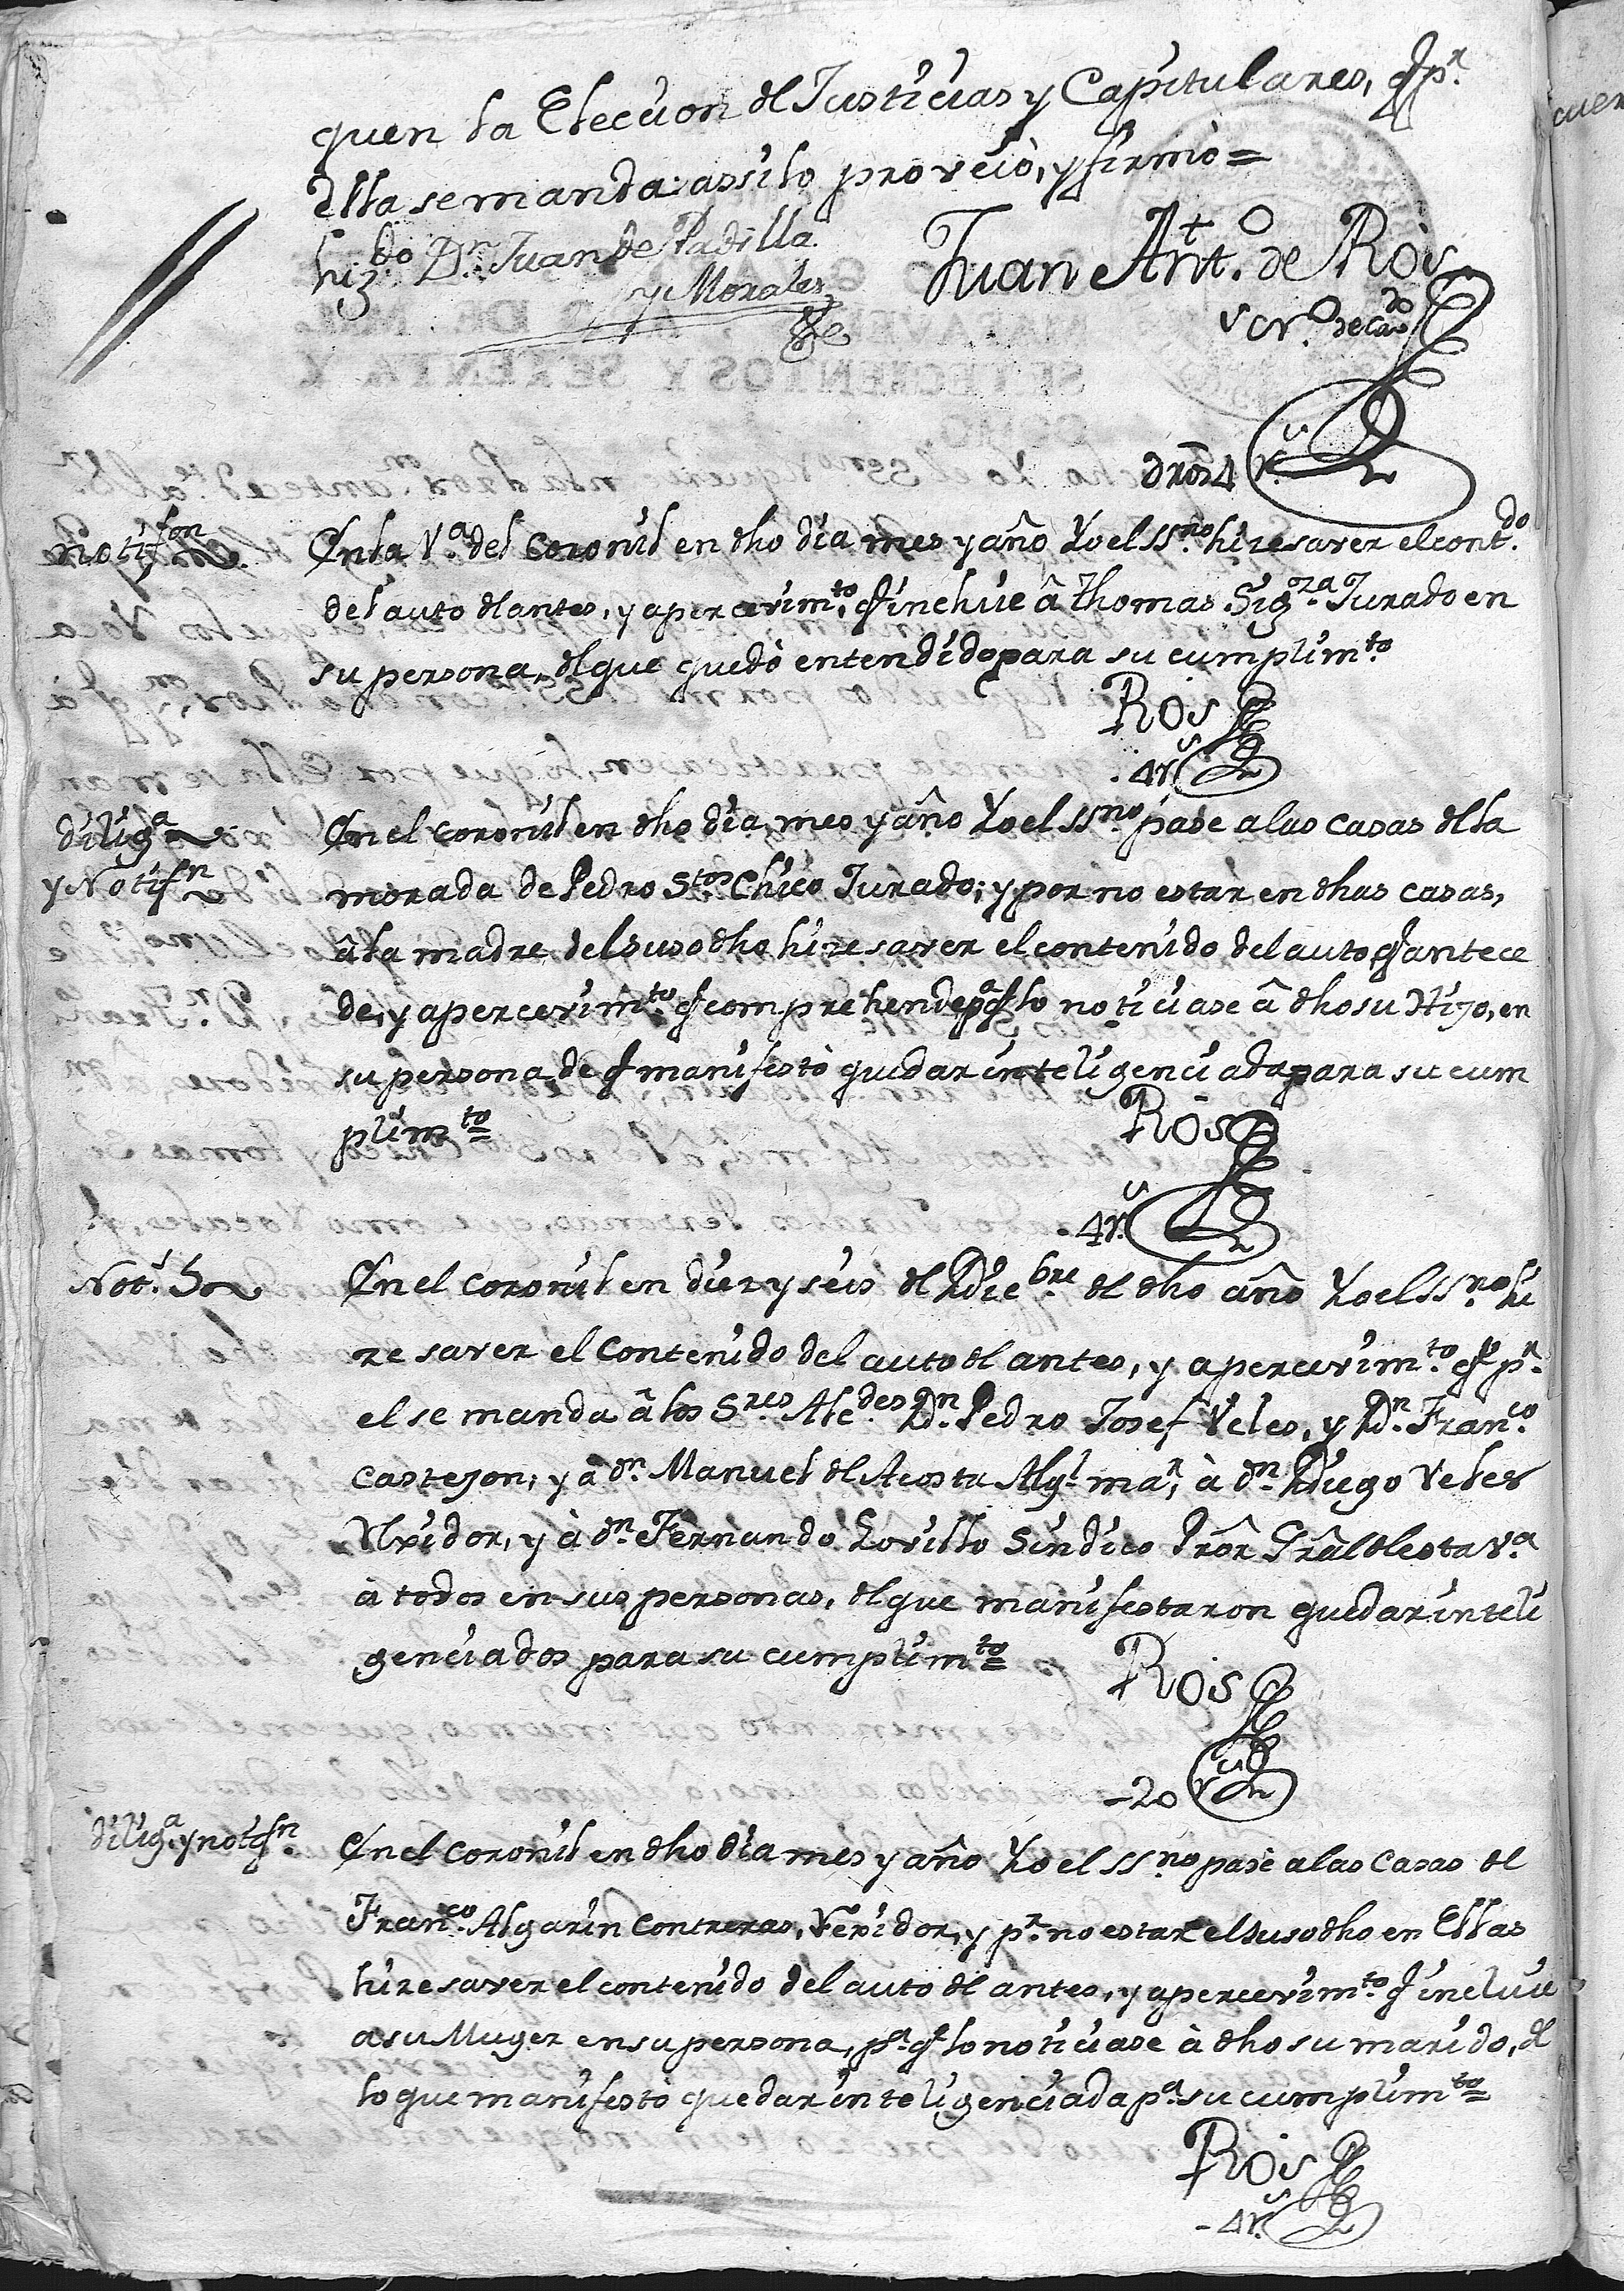 quen la Eleccion de Justicias y Capitulares, q.e p.r
ella se manda: assi lo proveió, y firmó=
Liz.do D.n Juan de Padilla
y Morales
Juan Ant.o de Rois
scr.o de cav.do
dros 4 r.s
notif.on
En la V.a del Coronil en dho dia mes y año Yo el ss.no hize saver el cont.do
del auto de antes, y apercevim.to q.e incluie â Thomas Sig.za Jurado en
su persona, de que quedò entendido para su cumplim.to
Rois
4 r.s
dilig.a
y Notif.n
En el Coronil en dho dia, mes y año Yo el ss.no pasè a las casas de la
morada de Pedro S.tos Chico Jurado; y por no estàr en dhas casas,
â la madre del suso dho hize saver el contenido del auto q.e antece
de, y apercevim.to q.e comprehende p.a q.e lo noticiase â dho su Hijo, en
su persona de q.e manifestò quedar inteligenciada para su cum
plim.to=
Rois
4 r.s
Not.s 5
En el Coronil en diez y seis de Diz.bre de dho año Yo el ss.no hi
ze saver el contenido del auto de antes, y apercevim.to q.e p.r
el se manda â los S.res Alc.des D.n Pedro Josef Veles, y D.n Fran.co
Castejon; y â d.n Manuel de Acosta Alg.l ma.r, à d.n Diego Veles
Rexidor, y à d.n Fernando Lovillo Sindico Prôr Grâl de esta V.a
à todos en sus personas, de que manifestaron quedar inteli
genciados para su cumplim.to=
Rois
20 r.s
dilig.a y notif.n
En el Coronil en dho dia mes y año Yo el ss.no pasè a las Casas de
Fran.co Algarin Contreras, Rexidor, y p.r no estar el suso dho en Ellas
hize saver el contenido del auto de antes, y apercevim.to q.e incluie
a su Muger en su persona, p.a q.e lo noticiase à dho su marido, de
lo que manifestò quedar inteligenciada p.a su cumplim.to=
Rois
4 r.s